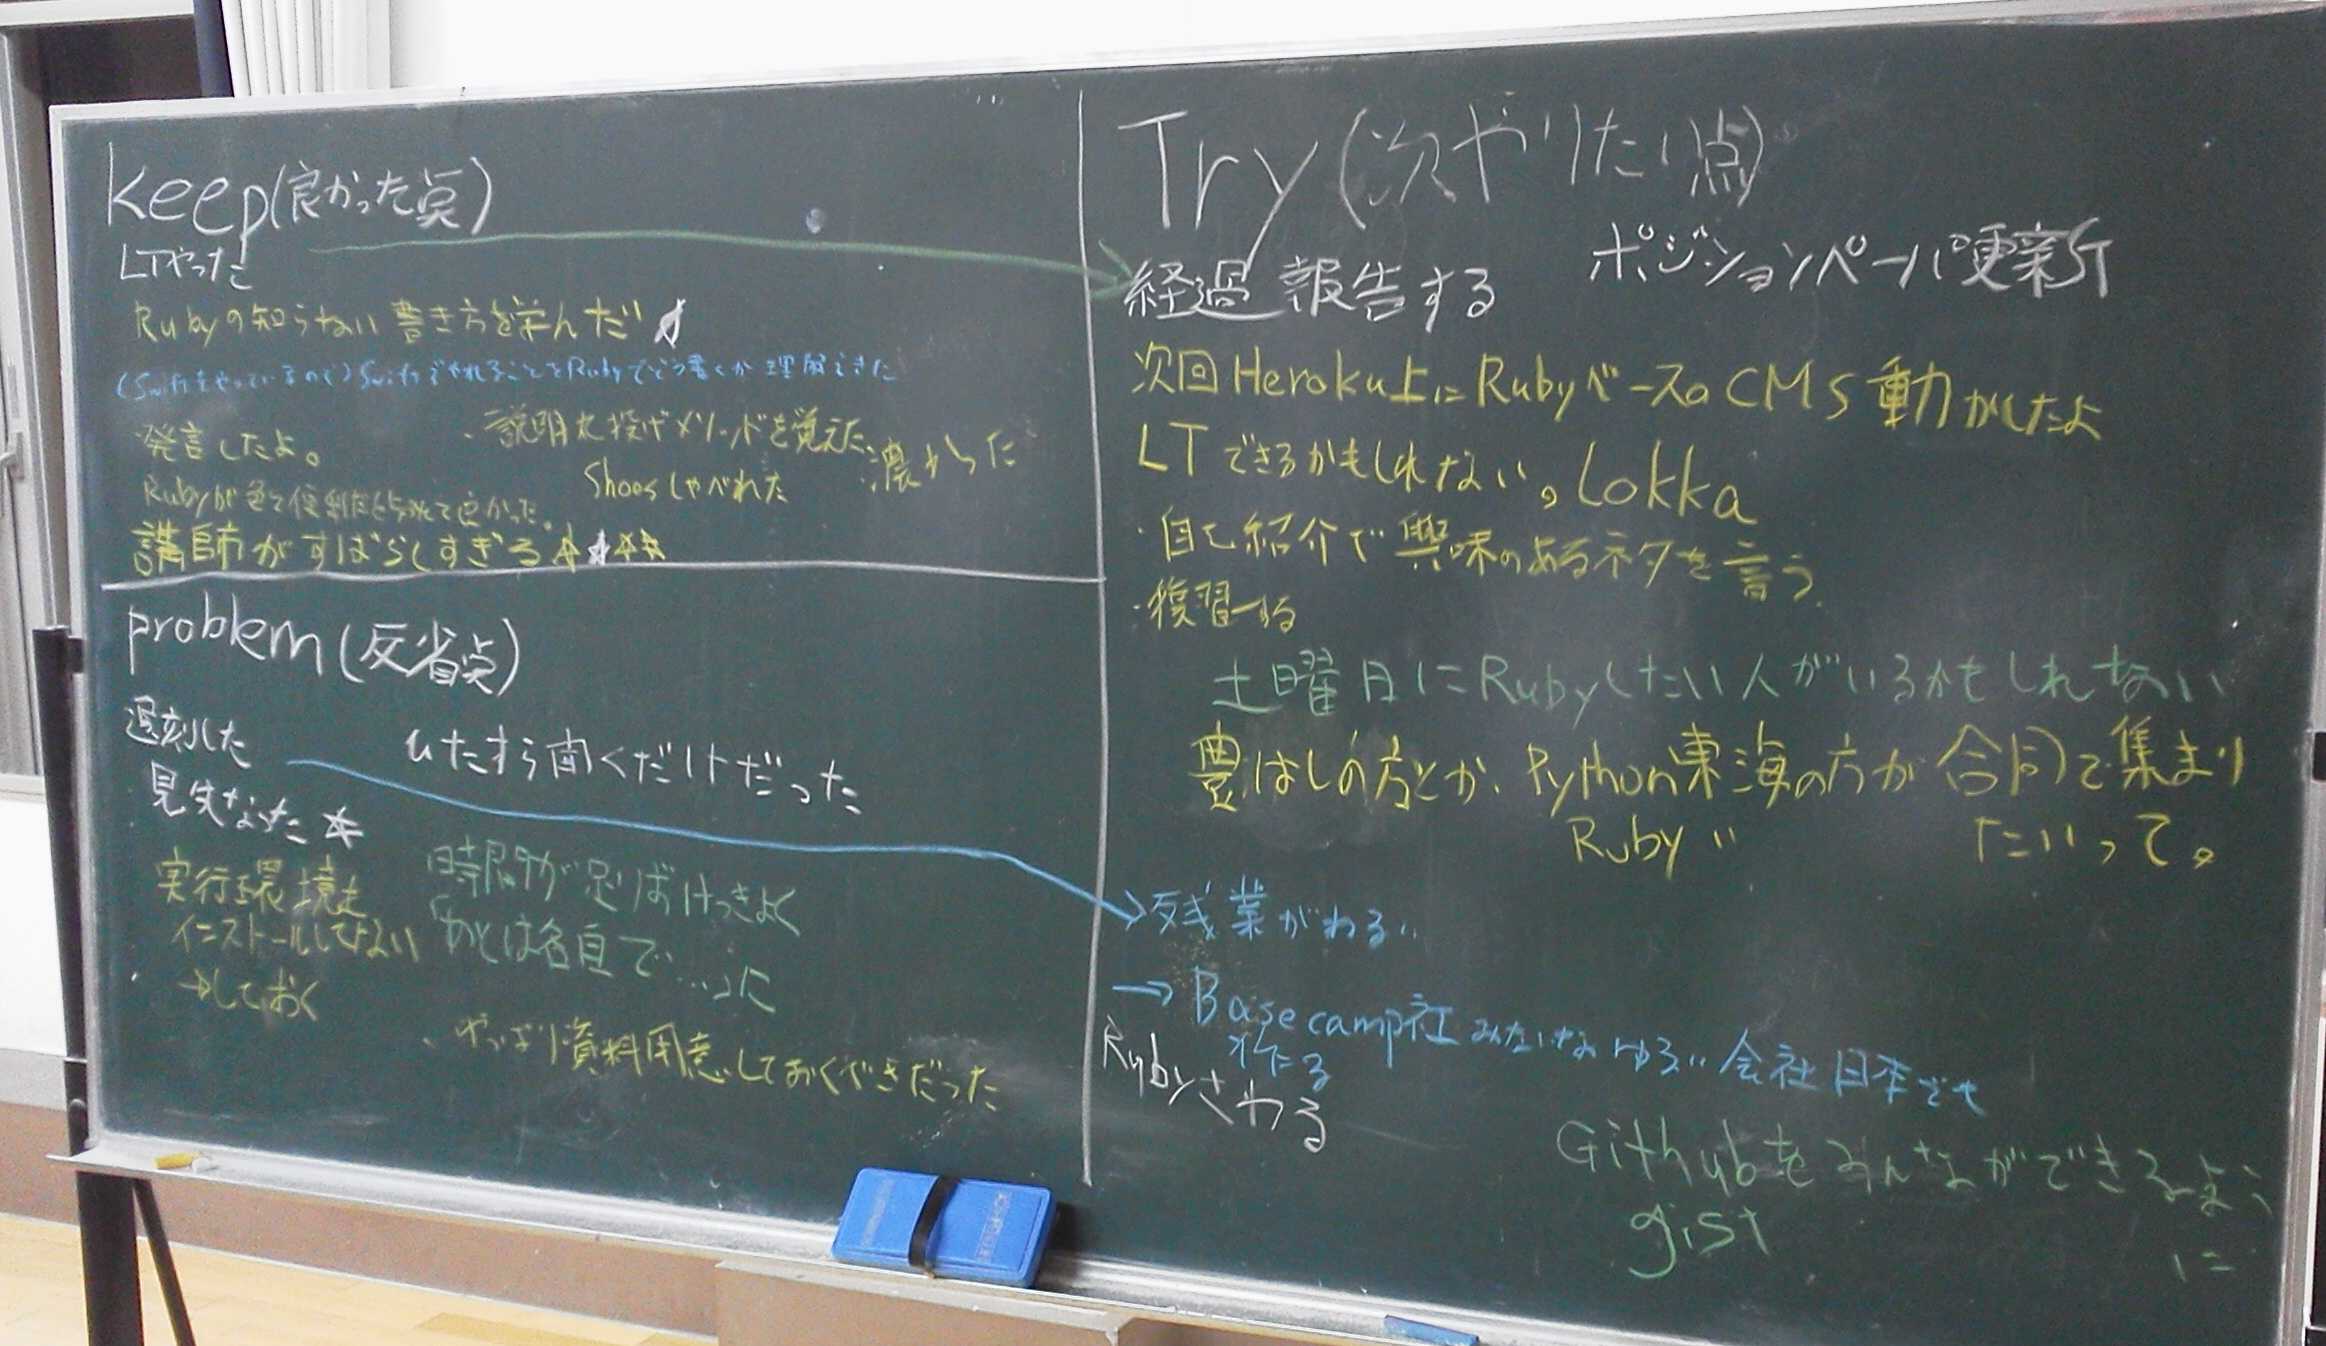 keep(良かった点)
LTやった
Rubyの知らない書き方を学んだ
(Swiftをやっているので)SwiftでやれることをRubyでどう書くか理解できた
発言したよ。
・説明丸投げメソッドを覚えた
濃かった
Shoesしゃべれた
Rubyが色々便利だと知れて良かった。
講師がすばらしすぎる☆☆☆☆
problem(反省点)
遅刻した
ひたすら聞くだけだった
見失なった☆
実行環境を
インストールしてない
→しておく
時間が足らずけっきょく
「あとは各自で…」に
・やっぱり資料用意しておくべきだった
Try(次やりたい点)
経過報告する
ポジションペーパ更新
次回Heroku上にRubyベースのCMS動かしたよ
LTできるかもしれない。Lokka
・自己紹介で興味のあるネタを言う
・復習する
土曜日にRubyしたい人がいるかもしれない
豊はしの方とか、Python東海の方が合同で集まり
Ruby 〃
たいって。
→残業がわるい
→Basecamp社みたいなゆるい会社日本でも
作る
Rubyさわる
Githubをみんなができるよう
に
gist